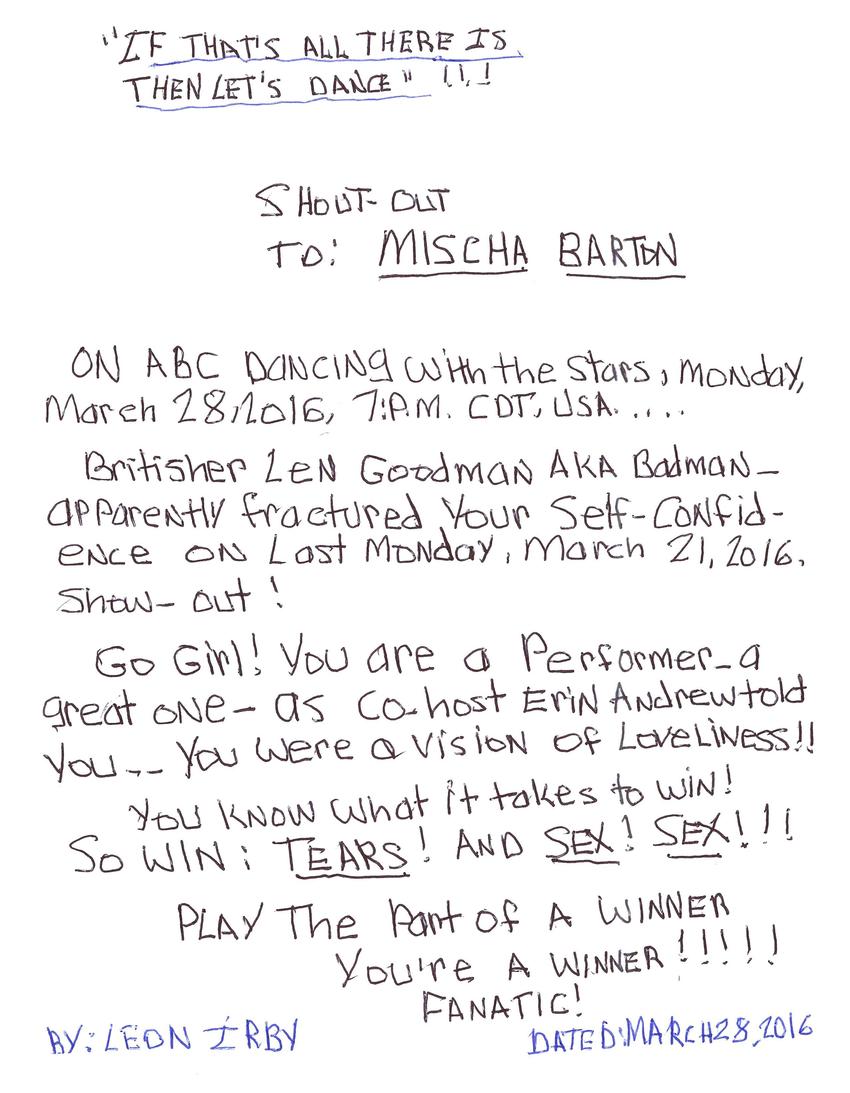 "IF THAT'S ALL THERE IS
THEN LET'S DANCE" !!!
SHOUT-OUT
TO: MISCHA BARTON
ON ABC DANCING With the Stars, MONday,
March 28, 2016, 7:P.M. CDT, USA. ....
Britisher LEN GOODMAN AKA Badman-
apparently fractured Your Self-Confid-
ence on Last Monday, March 21, 2016.
Show-out!
Go Girl! You are a Performer-a
great one- as Co-host Erin Andrew told
you.-- You were a Vision of LoveLiness!!
You KNOW What it takes to WiN!
So WIN: TEARS! AND SEX! SEX!!!
PLAY The Part of A WINNER
You're A WINNER!!!!!
FANATIC!
BY: LEON IRBY
DATED: MARCH 28, 2016